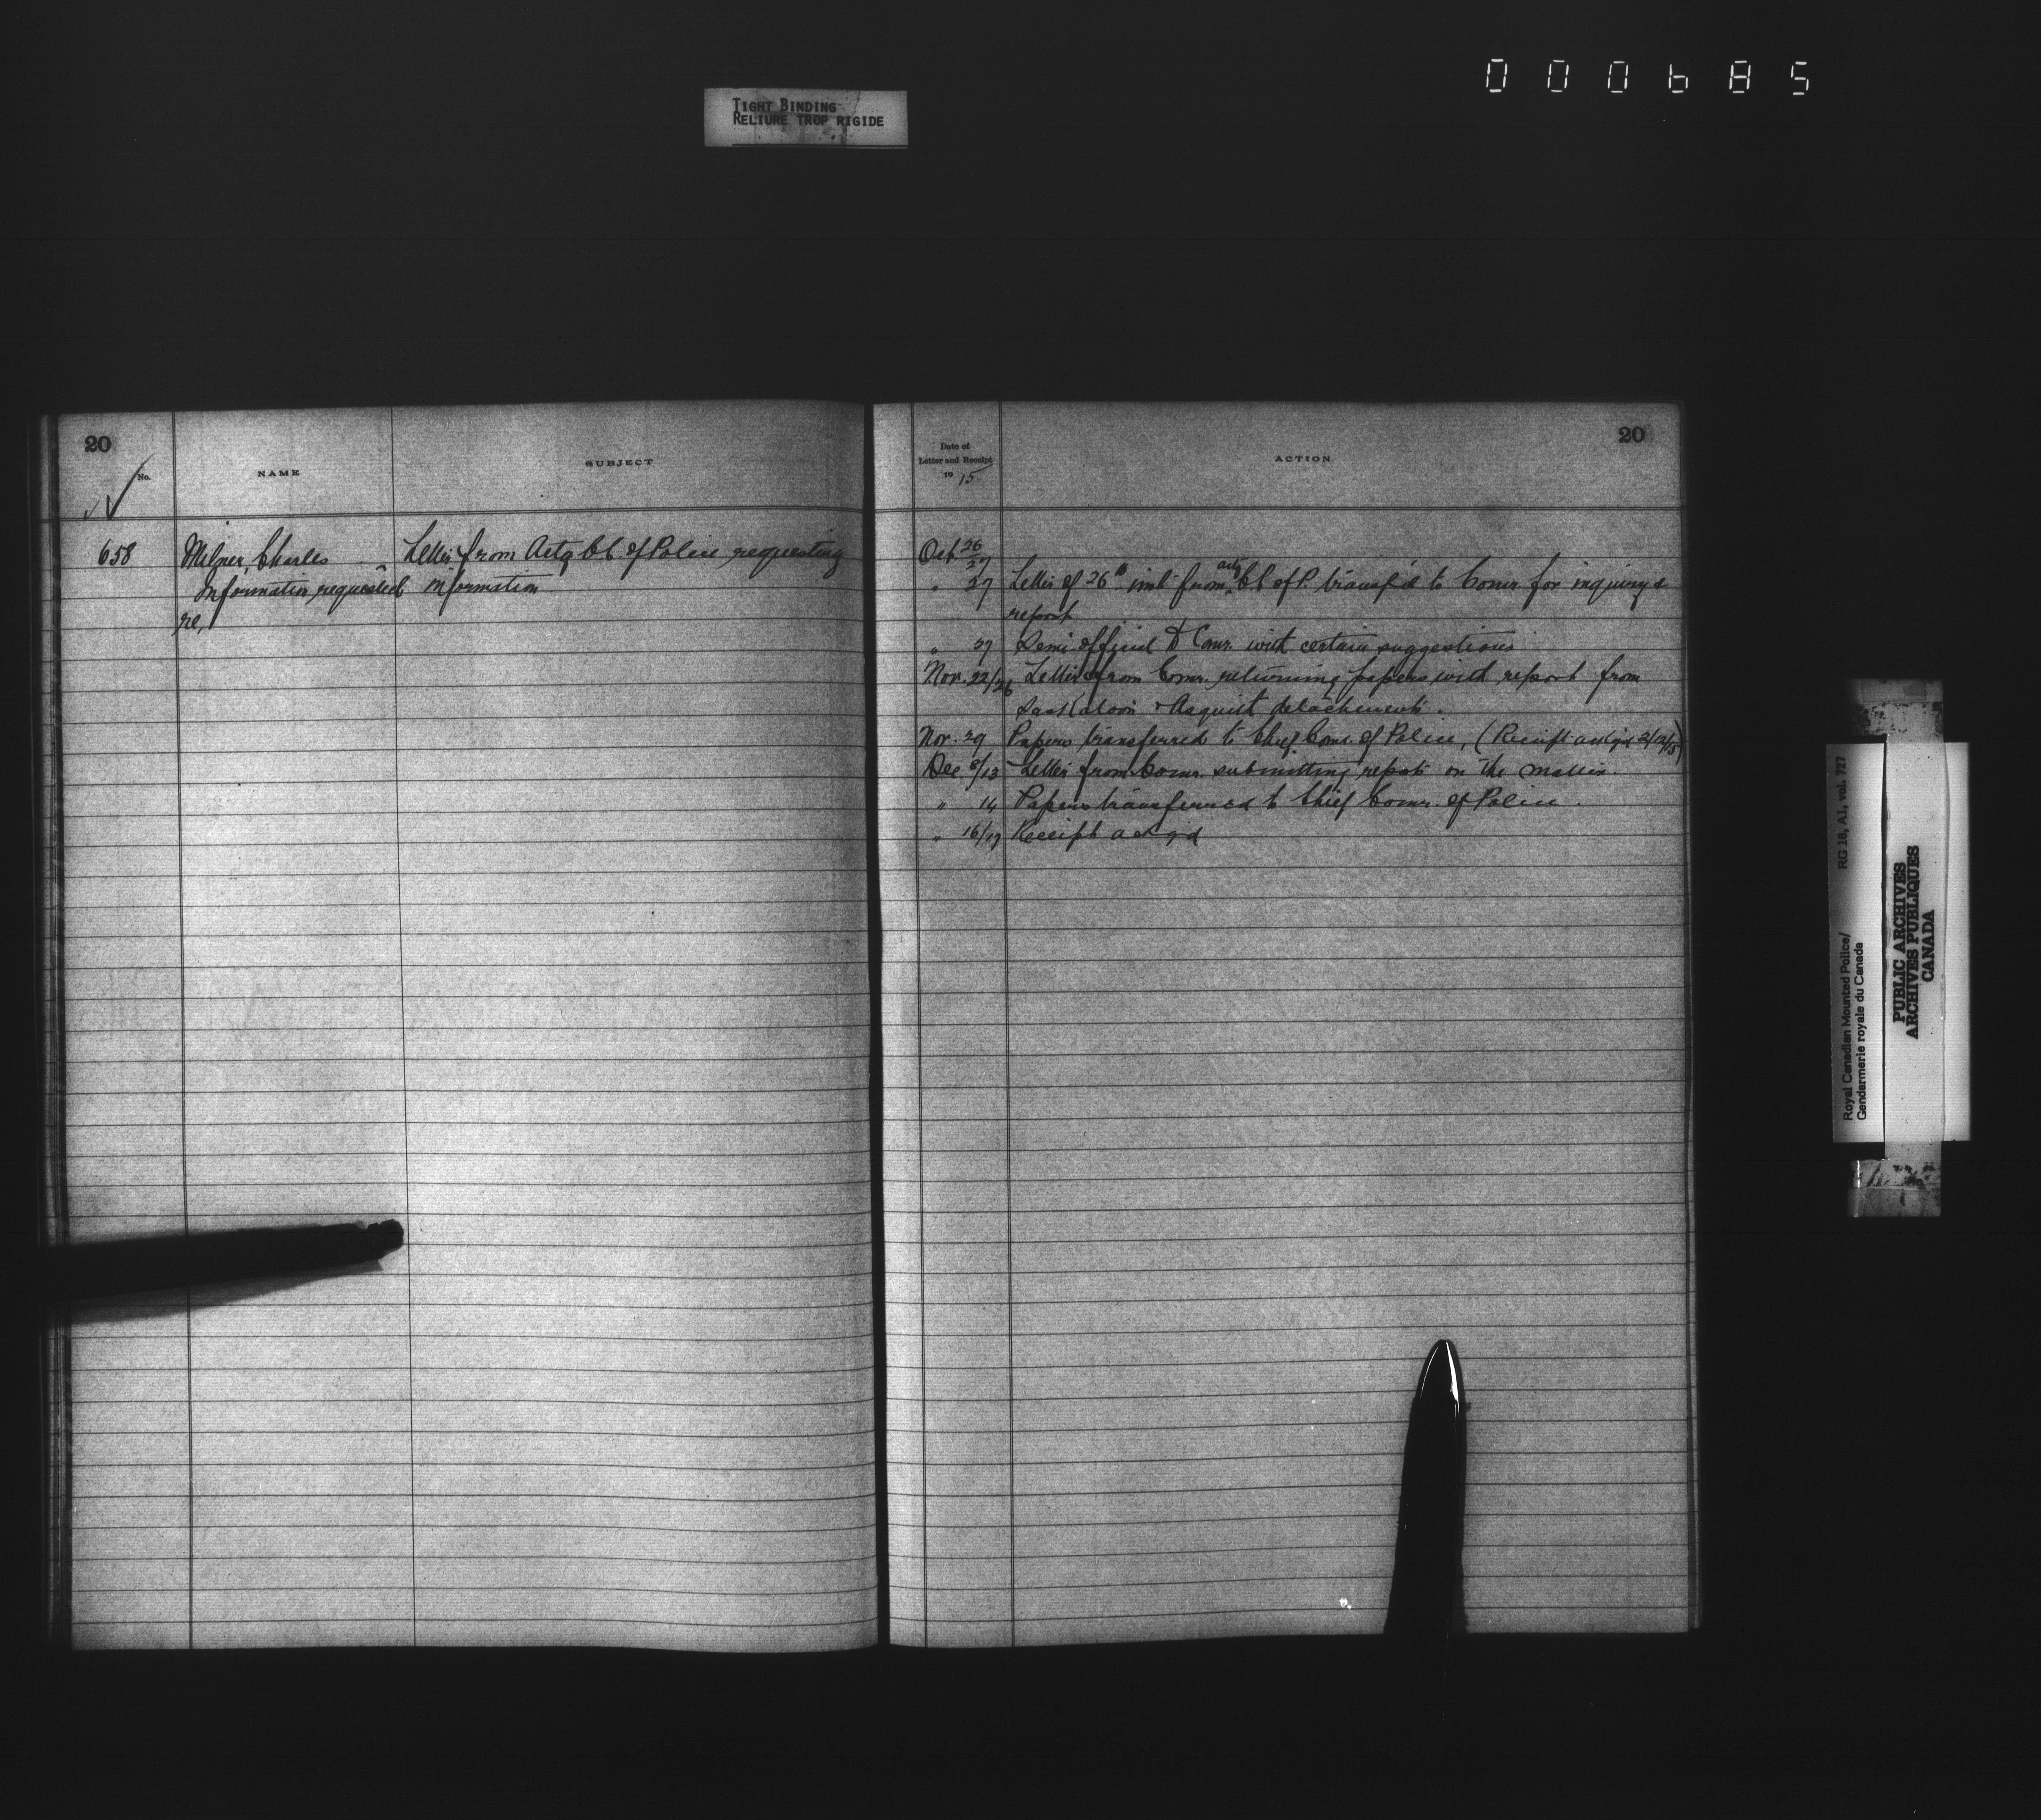 000685
TIGHT BINDING
RELIURE TROP RIGIDE
20
No.
NAME
SUBJECT
658
Milner, Charles
Information requested
re,
Letter from Actg Ch. of Police requesting
information
20
Date of
Letter and Receipt
1915
ACTION
Oct 26/27
" 27 Letter of 26th inst from actg Ch. of P. transf'd to Comr. for inquiry &
report
" 27 Semi-official to Comr. with certain suggestions
Nov. 22/26 Letter from Comr. returning papers with report from
Saskatoon & Asquith detachments.
Nov. 29 Papers transferred to Chief Comr. of Police, (Receipt
Dec 8/13 Letter from Comr. submitting report on the matter.
" 14 Papers transferred to Chief Comr. of Police.
" 16/17 Receipt ackgd
Royal Canadian Mounted Police/
Gendarmerie royale du Canada
RG 18, A1, vol. 727
PUBLIC ARCHIVES
ARCHIVES PUBLIQUES
CANADA